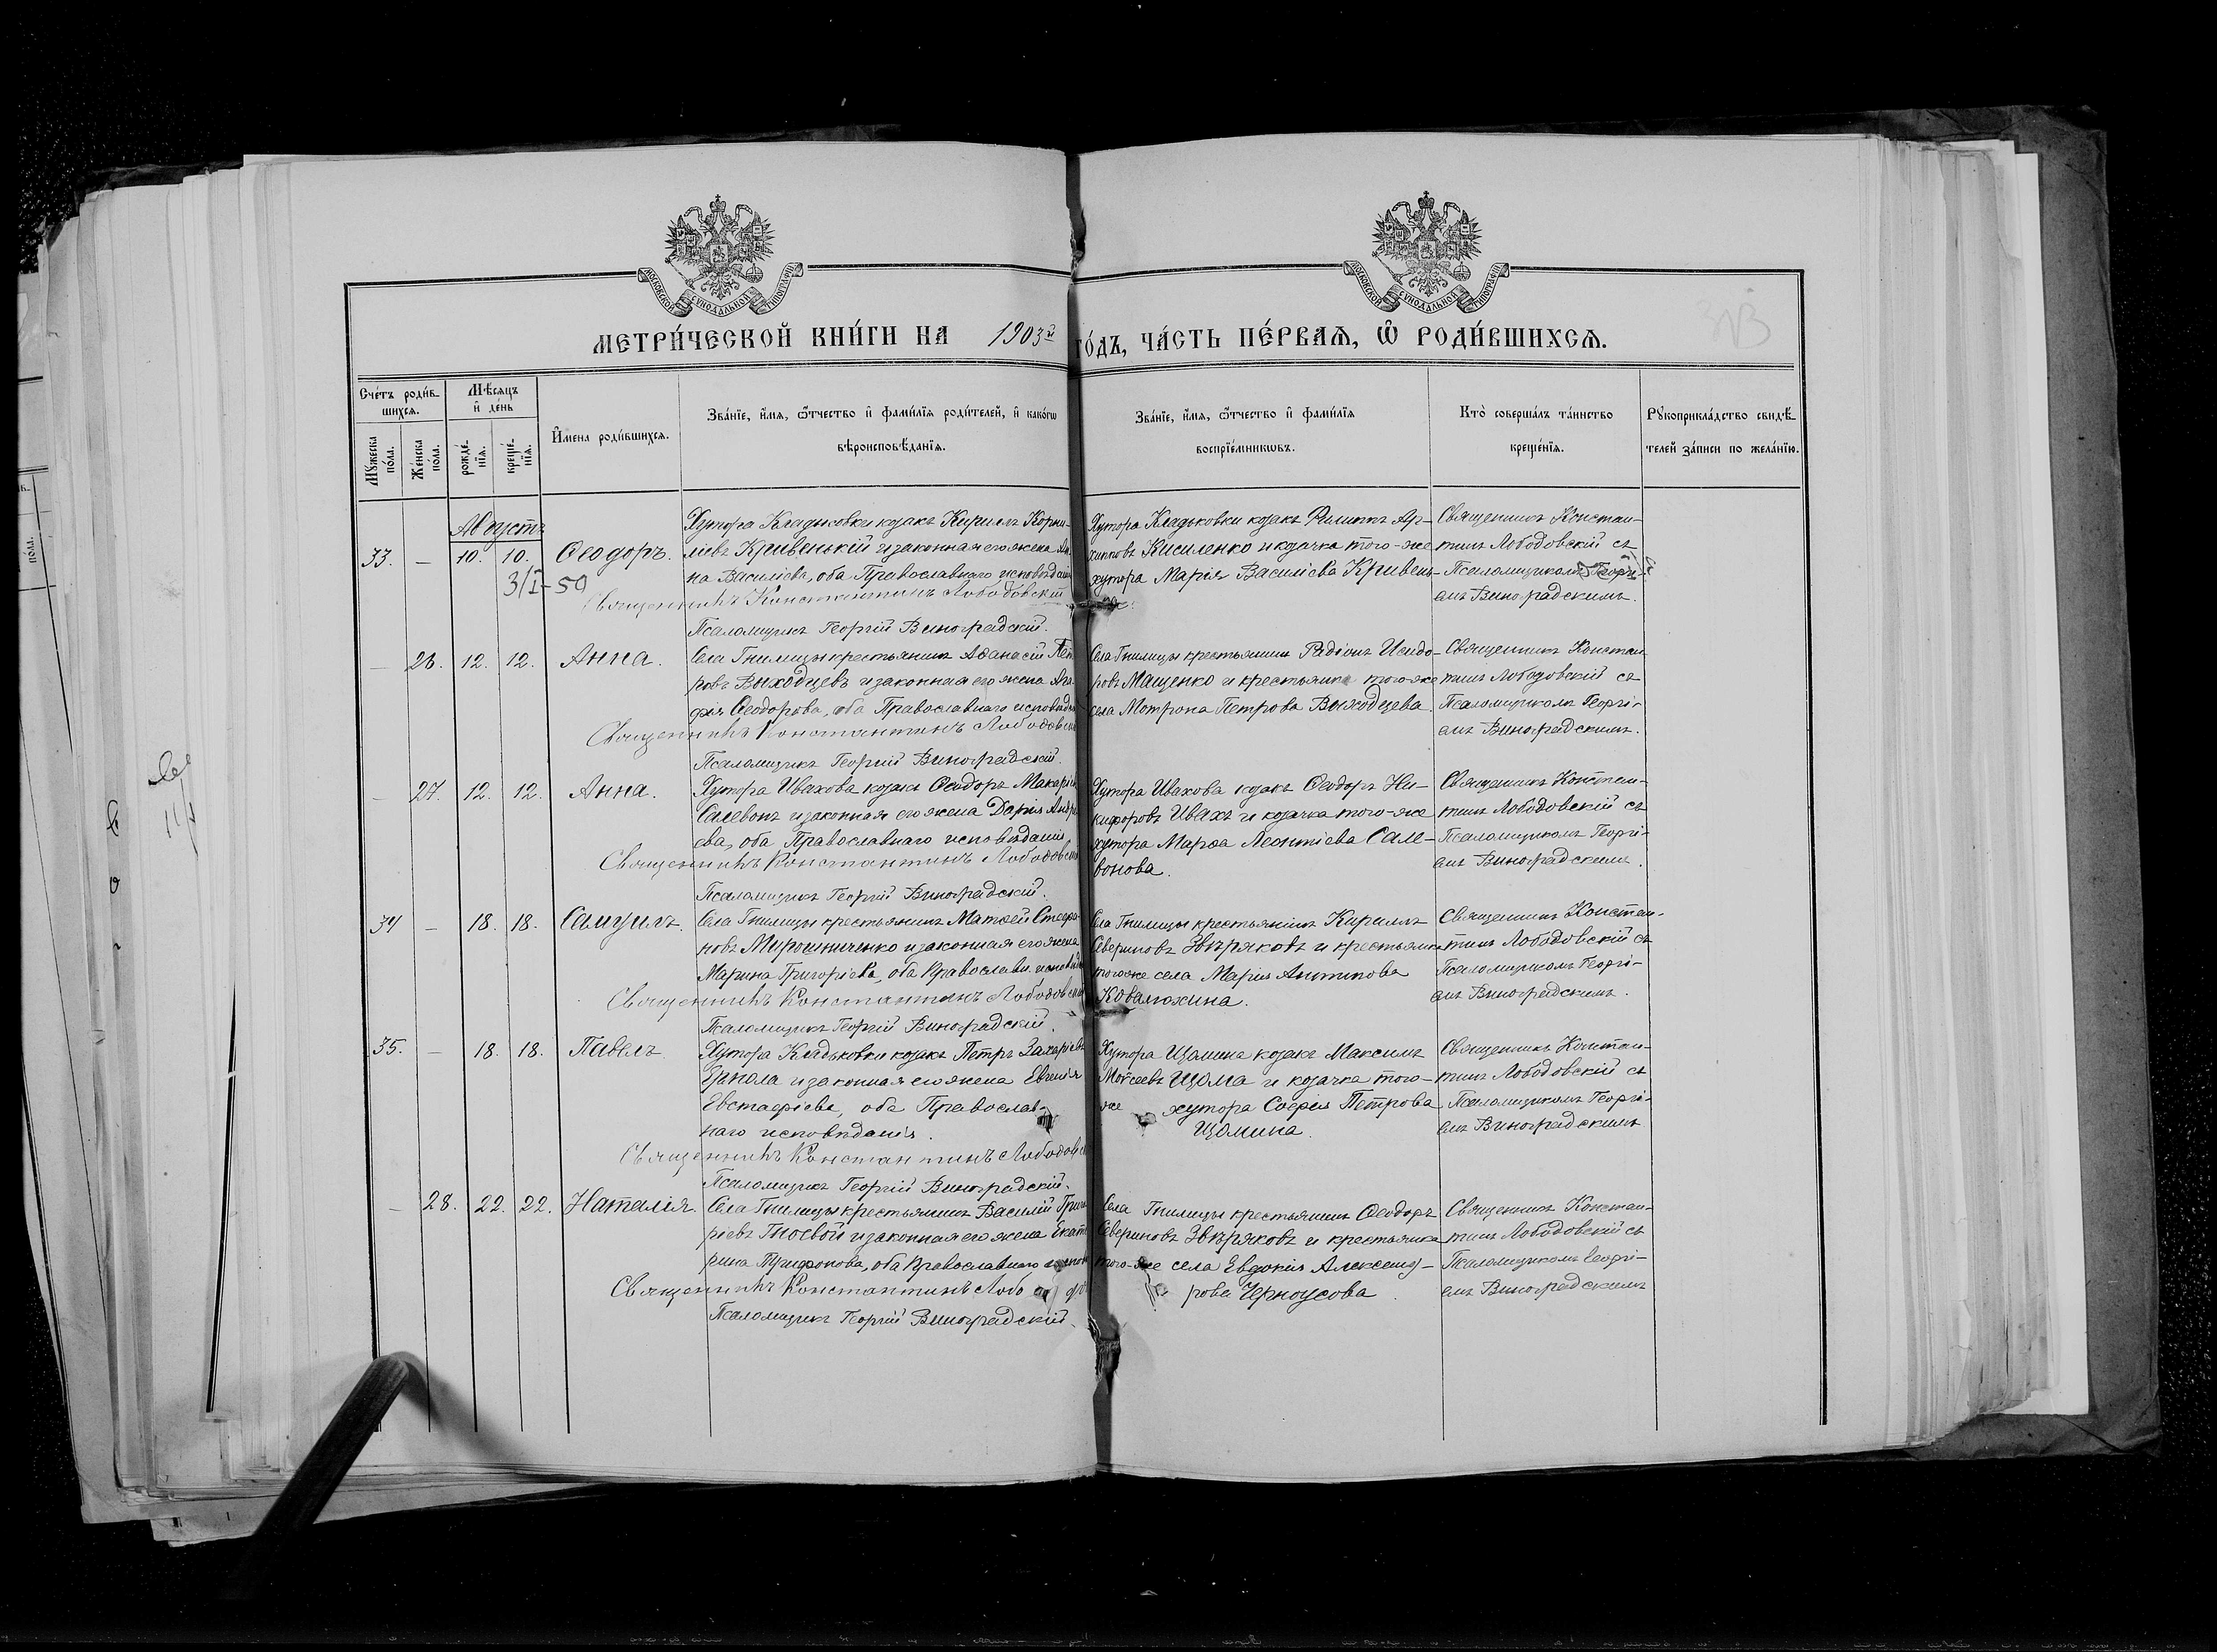 МОСКОВСКОЙ СѴНОДАЛЬНОЙ ТИПОГРАФІИ
МОСКОВСКОЙ СѴНОДАЛЬНОЙ ТИПОГРАФІИ
МЕТРИ́ЧЕСКОЙ КНИ́ГИ НА 1903й ГО́ДЪ, ЧА́СТЬ ПЕ́РВАѦ, Ѡ҆ РОДИ́ВШИХСѦ.
Сче́тъ роди́в-
шихсѧ.
Мꙋ́жеска
по́ла.
Же́нска
по́ла.
Мѣ́сѧцъ
и҆ де́нь
рожде́-
нїѧ.
креще́-
нїѧ.
И҆мена роди́вшихсѧ.
Зва́нїе, и҆́мѧ, ѻ҆́тчество и҆ фами́лїѧ роди́телей, и҆ како́гѡ
вѣроисповѣ́данїѧ.
Зва́нїе, и҆́мѧ, ѻ҆́тчество и҆ фами́лїѧ
воспрїе́мникѡвъ.
Кто̀ соверша́лъ та́инство
креще́нїѧ.
Рꙋкоприкла́дство свидѣ́-
телей за́писи по жела́нїю.
Августъ
33. — 10. 10. Ѳеодоръ.
3/I-50
Хутора Кладьковки козакъ Кириллъ Корни-
ліевъ Кривенькій и законная его жена Ан-
на Василіева, оба Православнаго исповѣданія
Священникъ Константинъ Лободовскій
Псаломщикъ Георгій Виноградскій.
Хутора Кладьковки козакъ Филиппъ Ар-
хиповъ Кисиленко и козачка того-же
хутора Марія Василіева Кривень-
Священникъ Констан-
тинъ Лободовскій съ
Псаломщикомъ Георгі-
емъ Виноградскимъ.
— 26. 12. 12. Анна.
Села Гнилицы крестьянинъ Аѳанасій Пет-
ровъ Выходцевъ и законная его жена Ага-
фія Ѳеодорова, оба Православнаго исповѣда
Священникъ Константинъ Лободовск
Псаломщикъ Георгій Виноградскій.
Села Гнилицы крестьянинъ Родіонъ Исидо-
ровъ Мащенко и крестьянка того-же
села Мотрона Петрова Выходцева.
Священникъ Констан-
тинъ Лободовскій съ
Псаломщикомъ Георгі-
емъ Виноградскимъ.
— 27. 12. 12. Анна.
Хутора Ивахова козакъ Ѳеодоръ Макарі
Салевонъ и законная его жена Дарія Андре
ева, оба Православнаго исповѣданія
Священникъ Константинъ Лободовск
Псаломщикъ Георгій Виноградскій.
Хутора Ивахова козакъ Ѳеодоръ Ни-
кифоровъ Ивахъ и козачка того-же
хутора Марѳа Леонтіева Сале-
вонова.
Священникъ Констан-
тинъ Лободовскій съ
Псаломщикомъ Георгі-
емъ Виноградскимъ.
34 — 18. 18. Самуилъ.
Села Гнилицы крестьянинъ Матѳей Стефа-
новъ Мирошниченко и законная его жена
Марина Григоріева, оба Православн. исповѣд
Священникъ Константинъ Лободовск
Псаломщикъ Георгій Виноградскій.
Села Гнилицы крестьянинъ Кириллъ
Севериновъ Звѣряковъ и крестьянка
того-же села Марія Антипова
Ковалюхина.
Священникъ Констан-
тинъ Лободовскій съ
Псаломщикомъ Георгі-
емъ Виноградскимъ.
35. — 18. 18. Павелъ
Хутора Кладьковки козакъ Петръ Захаріевъ
и законная его жена Евгенія
Евстафіева, оба Православ-
наго исповѣданія.
Священникъ Константинъ Лободовс
Псаломщикъ Георгій Виноградскій.
Хутора Щомина козакъ Максимъ
Моѵсеевъ Щома и козачка того-
же хутора Софія Петрова
Щомина.
Священникъ Констан-
тинъ Лободовскій съ
Псаломщикомъ Георгі-
емъ Виноградскимъ
— 28. 22. 22. Наталія.
Села Гнилицы крестьянинъ Василій Григо
ріевъ Гноевой и законная его жена Екате
рина Трифонова, оба Православнаго испов
Священникъ Константинъ Лобо
Псаломщикъ Георгій Виноградскій.
Села Гнилицы крестьянинъ Ѳеодоръ
Севериновъ Звѣряковъ и крестьянка
того-же села Евдокія Александ-
рова Черноусова.
Священникъ Констан-
тинъ Лободовскій съ
Псаломщикомъ Георгі-
емъ Виноградскимъ